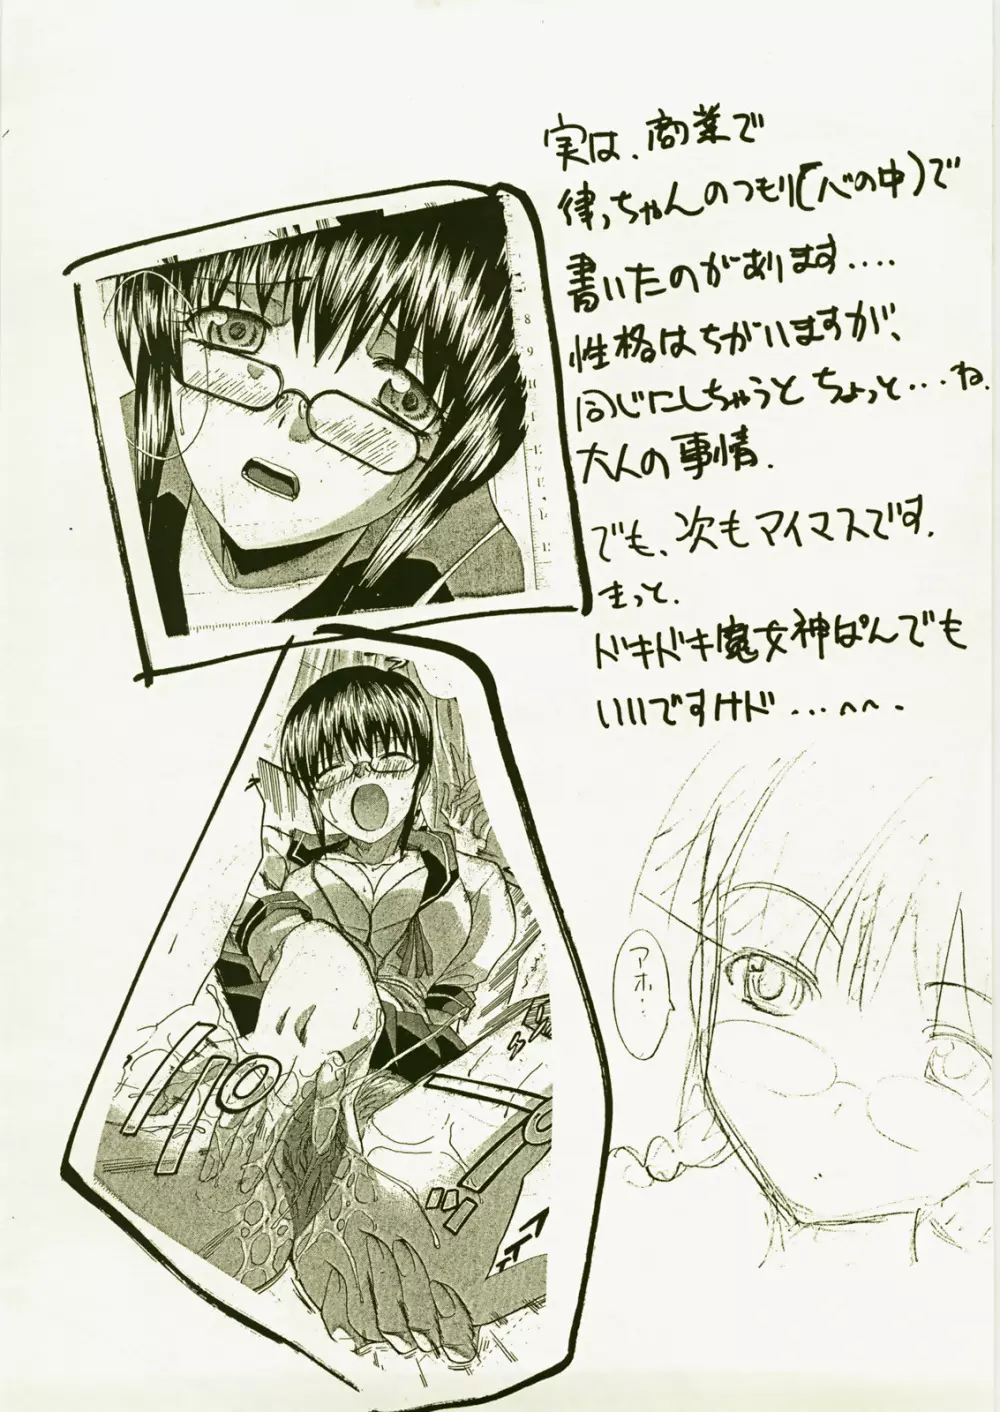 実は、商業で
律っちゃんのつもり(心の中)で
書いたのがあります....
性格はちがいますが、
同じにしちゃうと ちょっと...ね.
大人の事情.
でも、次もマイマスです.
きっと.
ドキドキ魔女神ぱんでも
いいですけド...へへ.
8
9
10
11
12
13
14
アホ…